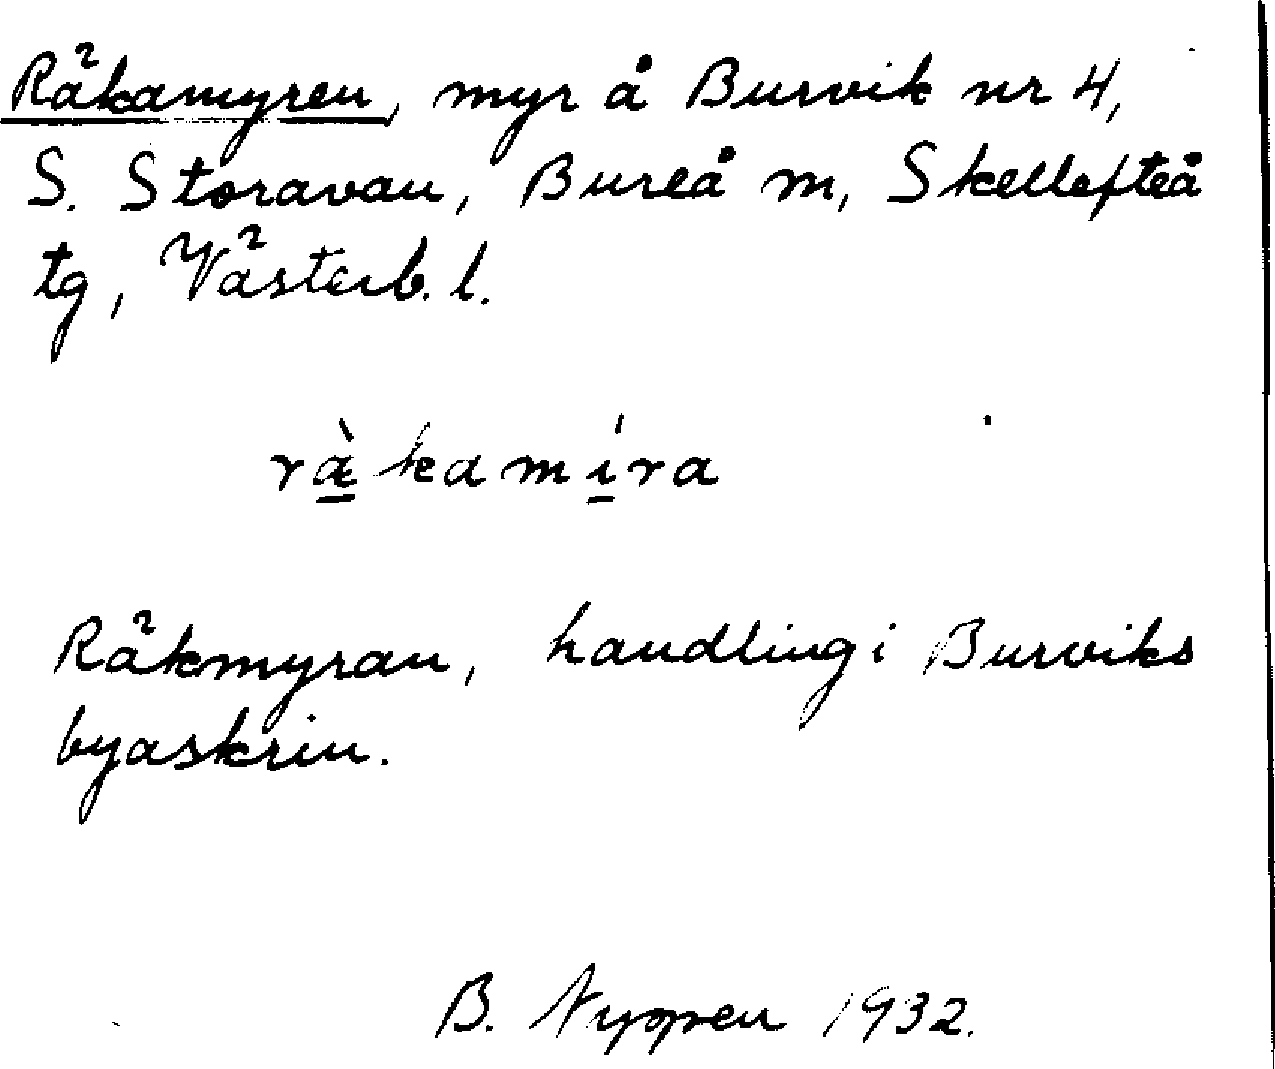 Räkamyren, myr å Burvik nr 4,
S. Storavan, Bureå m, Skellefteå
tg, Västerb. l.
ræ̠̀kamí̠ra
Räkmyran, handling i Burviks
byaskrin.
B. Nygren 1932.